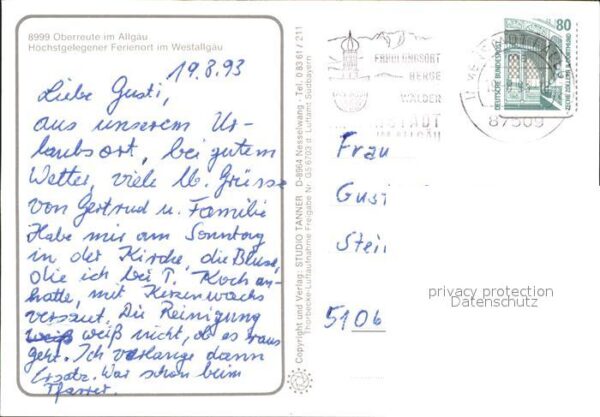 8999 Oberreute im Allgäu
Höchstgelegener Ferienort im Westallgäu
19.8.93
Liebe Gusti,
aus unserem Ur-
laubsort, bei gutem
Wetter, viele lb. Grüsse
von Gertrud u. Familie
Habe mir am Sonntag
in der Kirche, die Bluse,
die ich bei T. Koch an-
hatte, mit Kerzenwachs
versaut. Die Reinigung
weiß nicht, ob es raus
geht. Ich verlange dann
Ersatz. War schon beim
Pfarrer.
Copyright und Verlag: STUDIO TANNER D-8964 Nesselwang - Tel. 0 83 61 / 211
Thorbecke-Luftaufnahme Freigabe Nr. GS 6703 d Luftamt Südbayern
ERHOLUNGSORT
BERGE
WÄLDER
IM ALLGÄU
87509
80
DEUTSCHE BUNDESPOST
ZECHE ZOLLERN II DORTMUND
Frau
Gusti
Stei
5106
privacy protection
Datenschutz